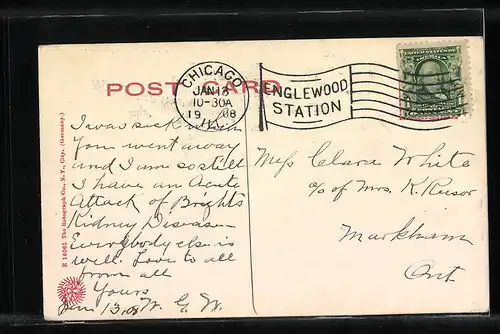 POST CARD
CHICAGO
JAN 13
10-30A
1908
ENGLEWOOD
STATION
UNITED STATES OF AMERICA
I was sick when
You went away
and I am so still
I have an Acute
Attack of Brights
Kidney Disease
Everybody else is
well. Love to all
from all
Yours
W. G. W.
Jan 13, 08
Miss Clara White
c/o of Mrs. K.
Markham
Ont.
E 14065 The Rotograph Co., N.Y., City. (Germany.)